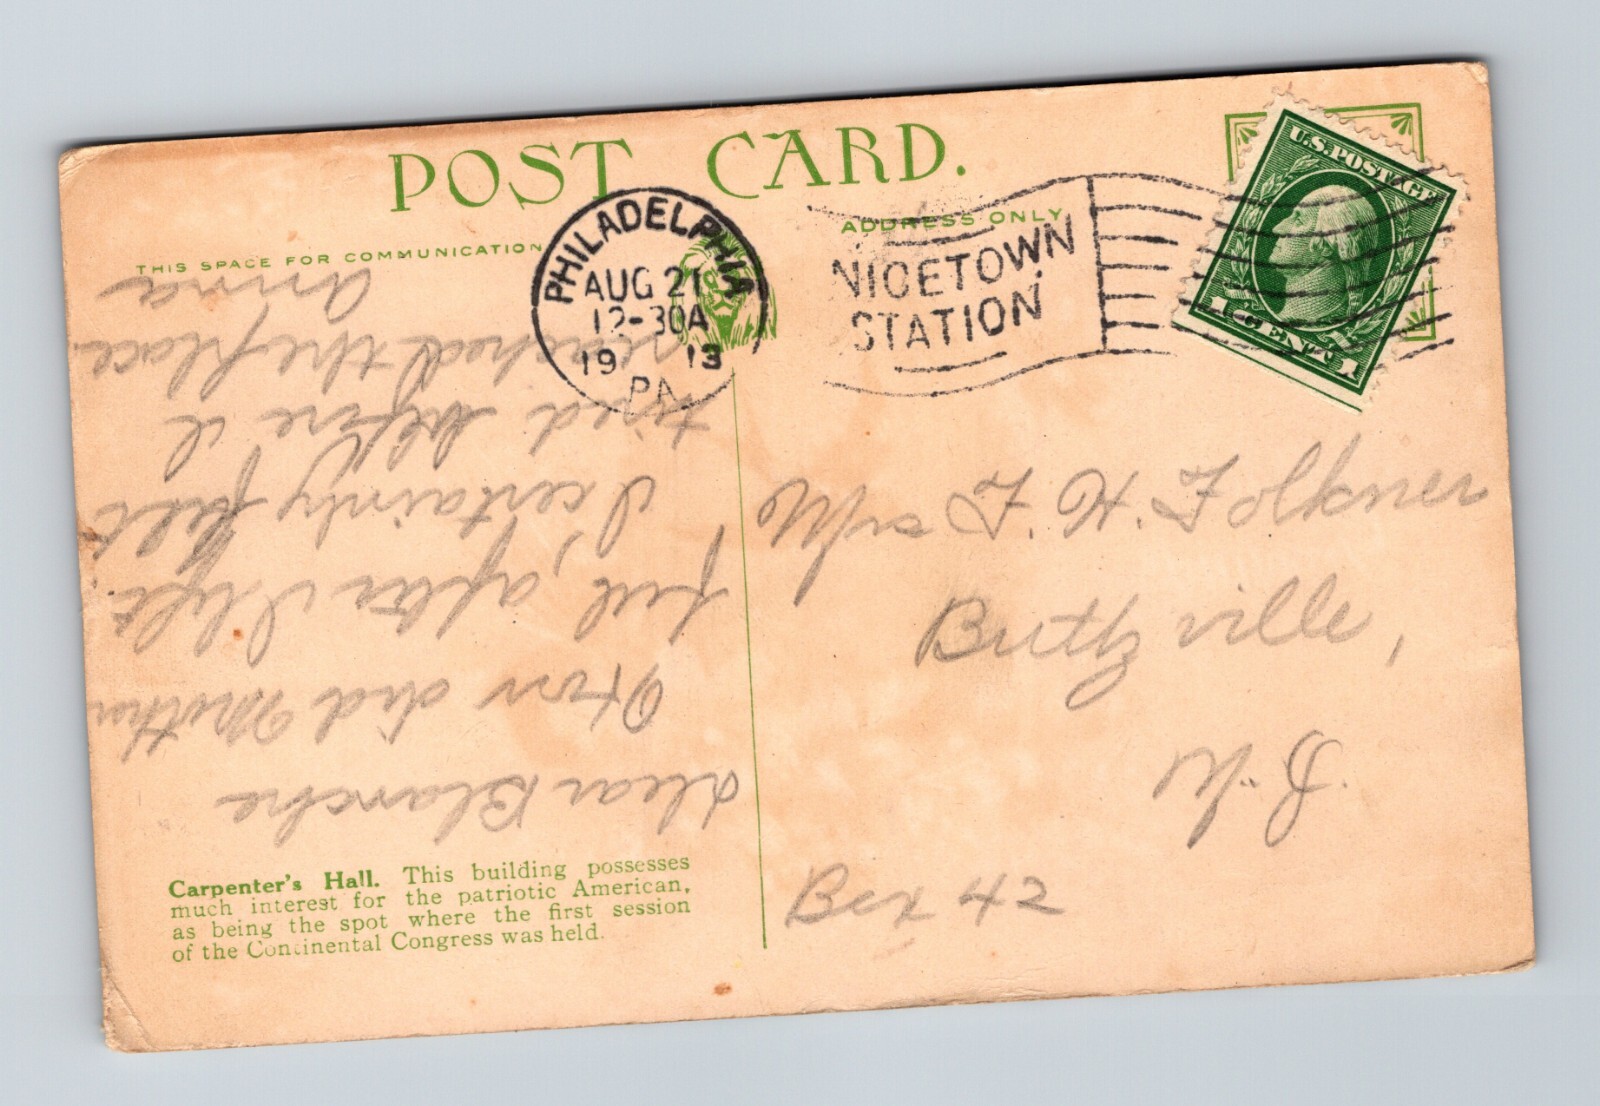 POST CARD.
THIS SPACE FOR COMMUNICATION
ADDRESS ONLY
PHILADELPHIA
AUG 21
12-30A
1913
PA.
NICETOWN
STATION
U.S. POSTAGE
1 CENT 1
Dear Blanche
How did Mother
feel after I left.
I certainly felt
tired before I
reached the place.
Anna
Carpenter's Hall. This building possesses
much interest for the patriotic American,
as being the spot where the first session
of the Continental Congress was held.
Buttzville,
N.J.
Box 42